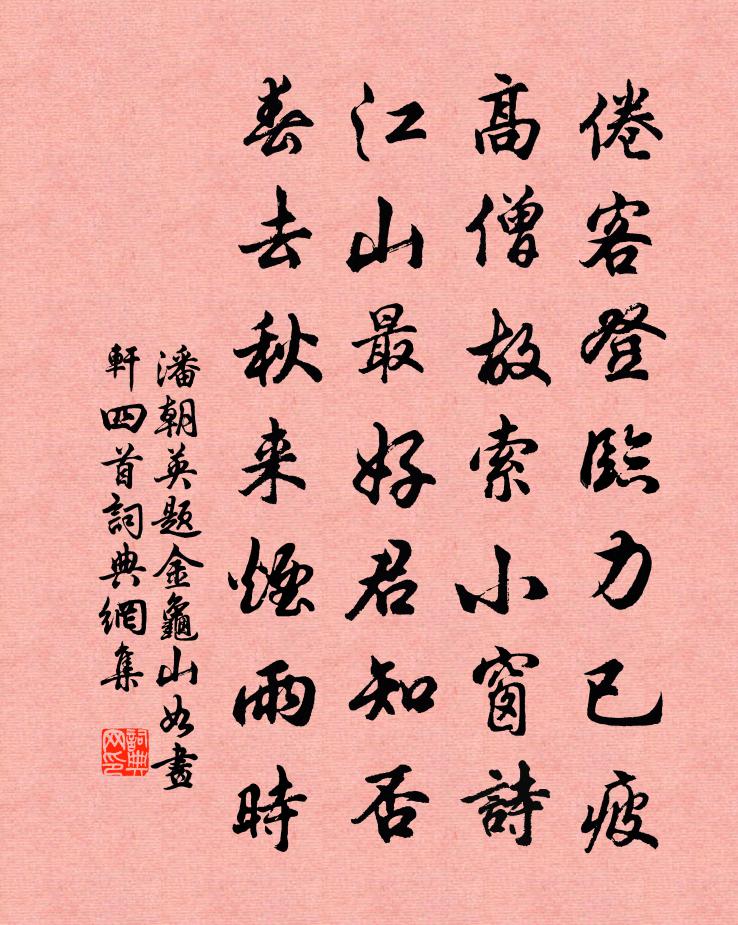 倦客登臨力已疲
高僧故索小窗詩
江山最好君知否
春去秋来煙雨時
潘朝英題金龜山如畫
軒四首詞典網集
詞典
网印